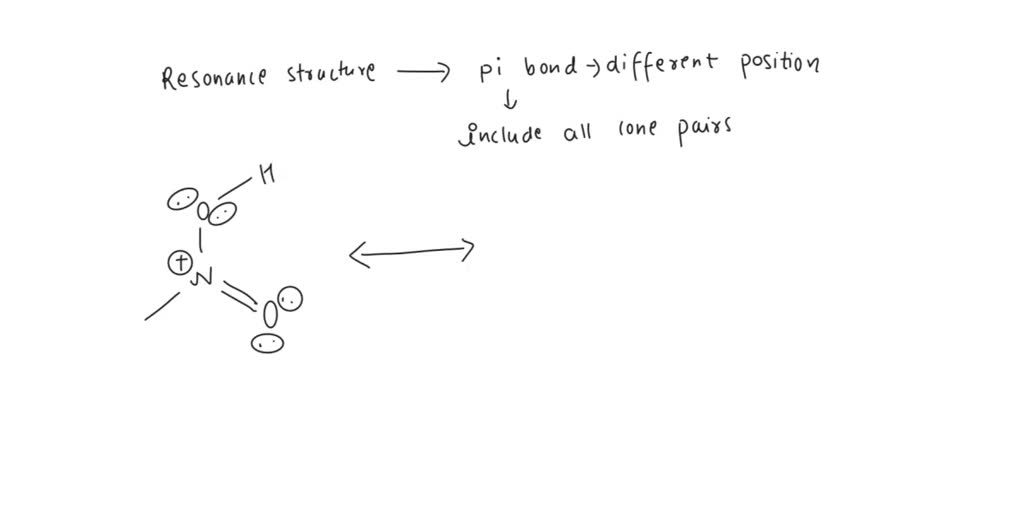 Resonance structure → pi bond → different position
↓
include all lone pairs
H
O
⊕
N
O